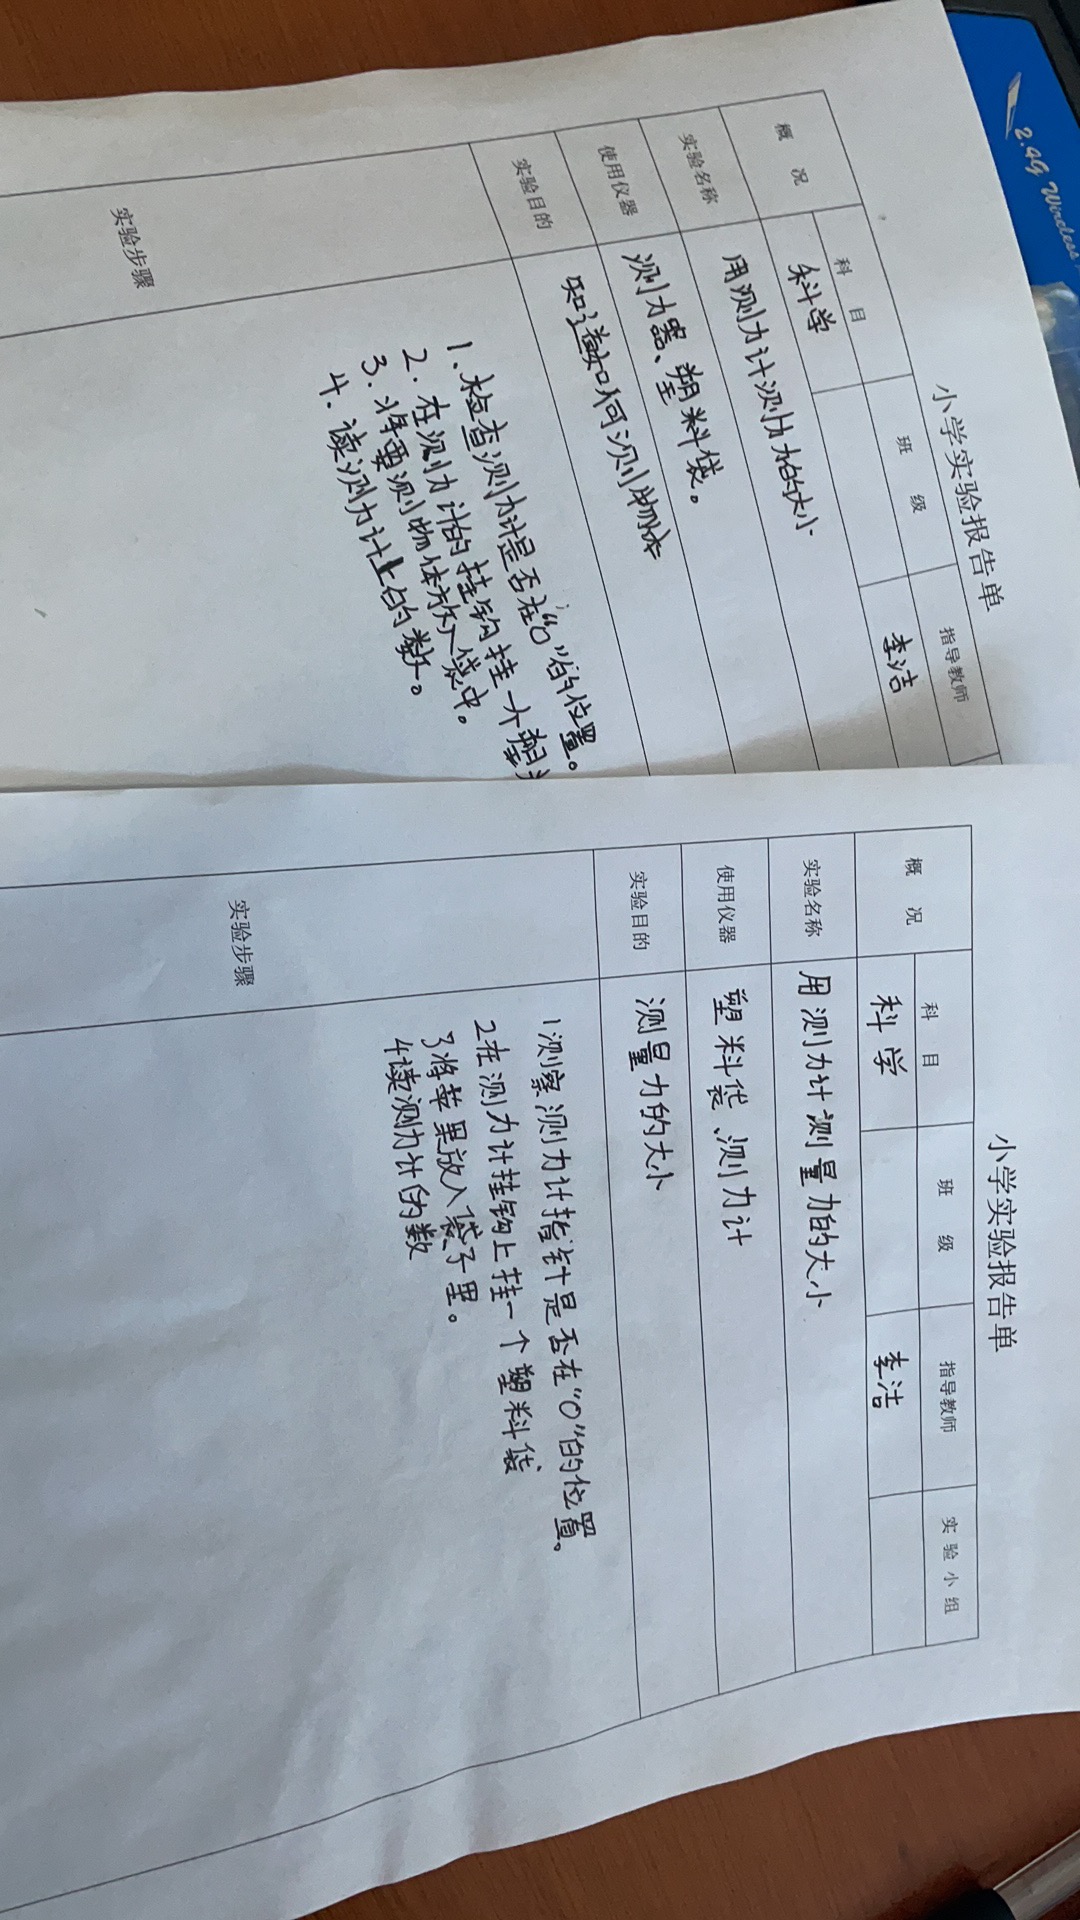 2.4G Wireless
小学实验报告单
概 况
科 目
班 级
指导教师
科学
李洁
实验名称
用测力计测力的大小
使用仪器
测力器、塑料袋。
实验目的
知道如何测物体
实验步骤
1、检查测力计是否在“0”的位置。
2.在测力计的挂钩挂一个塑
3.将要测物体放入袋中。
4.读测力计上的数。
小学实验报告单
概 况
科 目
班 级
指导教师
实验小组
科学
李洁
实验名称
用测力计测量力的大小
使用仪器
塑料袋、测力计
实验目的
测量力的大小
实验步骤
1测察测力计指针是否在“0”的位置。
2在测力计挂钩上挂一个塑料袋
3将苹果放入袋子里。
4读测力计的数